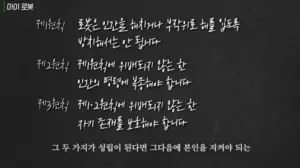 아이 로봇
제1원칙 로봇은 인간을 해치거나 부작위로 해를 입도록
방치해서는 안 됩니다
제2원칙 제1원칙에 위배되지 않는 한
인간의 명령에 복종해야 합니다
제3원칙 제1·2원칙에 위배되지 않는 한
자기 존재를 보호해야 합니다
그 두 가지가 성립이 된다면 그다음에 본인을 지켜야 되는